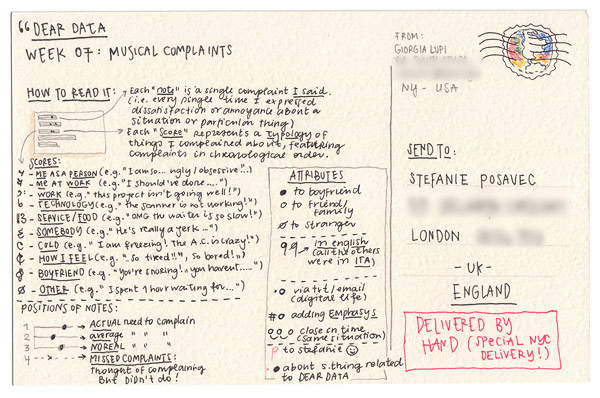 “ DEAR DATA
WEEK 07: MUSICAL COMPLAINTS
HOW TO READ IT:
Each "note" is a single complaint I said.
(i.e. every single time I expressed
dissatisfaction or annoyance about a
situation or particular thing)
Each "score" represents a typology of
things I complained about, featuring
complaints in chronological order.
SCORES:
ME AS A PERSON (e.g. "I am so... ugly/obsessive"..)
ME AT WORK (e.g. "I should've done....")
WORK (e.g. "this project isn't going well!")
TECHNOLOGY (e.g. "the scanner is not working!")
SERVICE/FOOD (e.g. "OMG the waiter is so slow!")
SOMEBODY (e.g. "He's really a jerk...")
COLD (e.g. "I am freezing! The A.C. is crazy!")
HOW I FEEL (e.g. ".. so tired!!", so bored!..)
BOYFRIEND (e.g. "You're snoring!.. you haven't.....")
OTHER (e.g. "I spent 1 hour waiting for...")
POSITIONS OF NOTES:
1 ACTUAL need to complain
2 average " " "
3 NO REAL " " "
4 MISSED COMPLAINTS:
Thought of complaining
But DIDN'T do!
ATTRIBUTES
to boyfriend
to friend/
family
to stranger
in english
(all the others
were in ITA)
via txt/email
(digital life)
adding EMPHASYS
close in time
(same situation)
to stefanie
about s.thing related
to DEAR DATA
FROM:
GIORGIA LUPI
NY - USA
SEND TO:
STEFANIE POSAVEC
LONDON
- UK -
ENGLAND
DELIVERED BY
HAND (SPECIAL NYC
DELIVERY!)